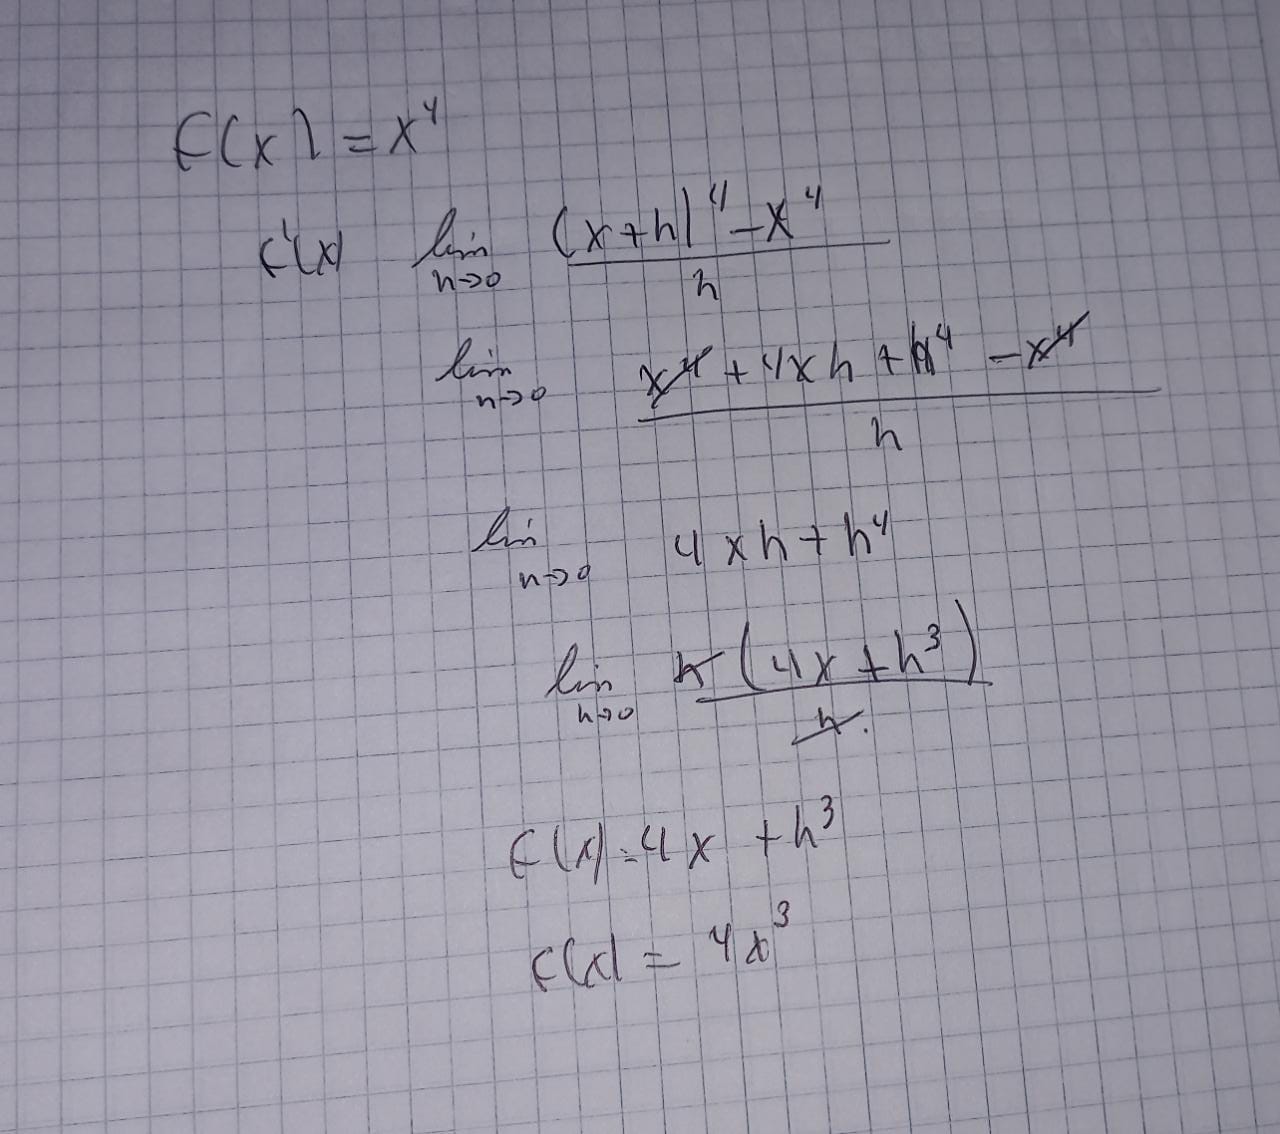 f(x) = x⁴
f'(x) lim h→0 (x+h)⁴ - x⁴ / h
lim h→0 x⁴ + 4xh + h⁴ - x⁴ / h
lim h→0 4xh + h⁴
lim h→0 h(4x + h³) / h.
f(x) = 4x + h³
f(x) = 4x³